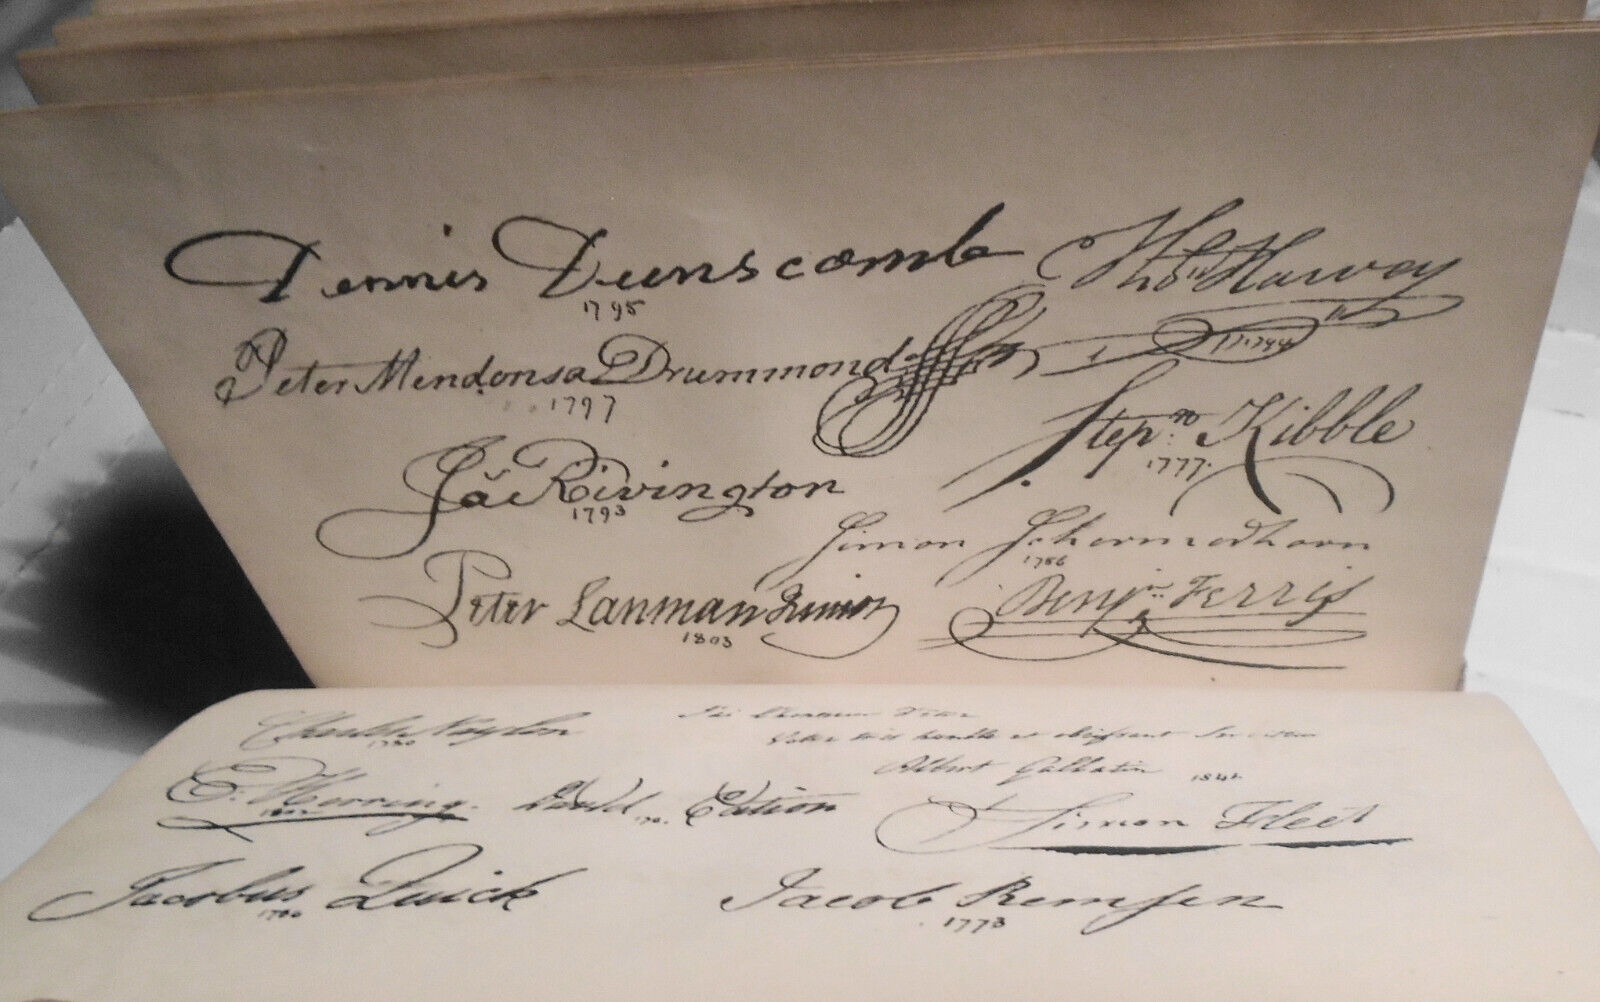 Dennis Dunscomb
1795
Thos Harvey
1794
Peter Mendonsa Drummond
1797
Stepn Kibble
1777
Jas Rivington
1793
Simon Schermerhorn
1786
Peter Lanman Junior
1803
Benjn Ferris
Naylor
1780
Albert Gallatin
E. Herring
David
Simon Fleet
Jacobus Quick
Jacob Remsen
1773